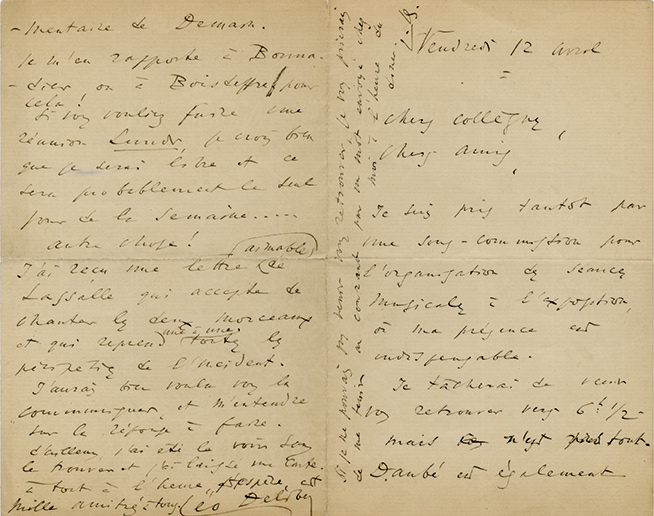 Vendredi 12 avril
Chers collègues,
Chers amis,
Je suis pris tantôt par
une sous-commission pour
l'organisation de séances
musicales à l'exposition,
où ma présence est
indispensable.
Je tâcherai de venir
vous retrouver vers 6h 1/2
mais ce n'est pas tout.
Danbé est également
-mentaire de Demain.
Je m'en rapporte à Bonna-
-dier, ou à Boisdeffre pour
cela!
Si vous vouliez faire une
réunion Lundi, je crois bien
que je serai libre et ce
sera probablement le seul
jour de la semaine.....
autre chose!
J'ai reçu une lettre (aimable) de
Lassalle qui accepte de
chanter les deux morceaux
et qui reprend une à une toutes les
péripéties de l'incident.
J'aurais bien voulu vous la
communiquer, et m'entendre
sur la réponse à faire.
D'ailleurs, j'ai été le voir sans
le trouver et j'ai laissé ma carte.
à tout à l'heure, j'espère et
mille amitiés à tous Léo Delibes
Si je ne pouvais pas venir vous retrouver je vous prierais
de me tenir au courant par un mot envoyé chez
moi à l'heure du
diner.
L.D.